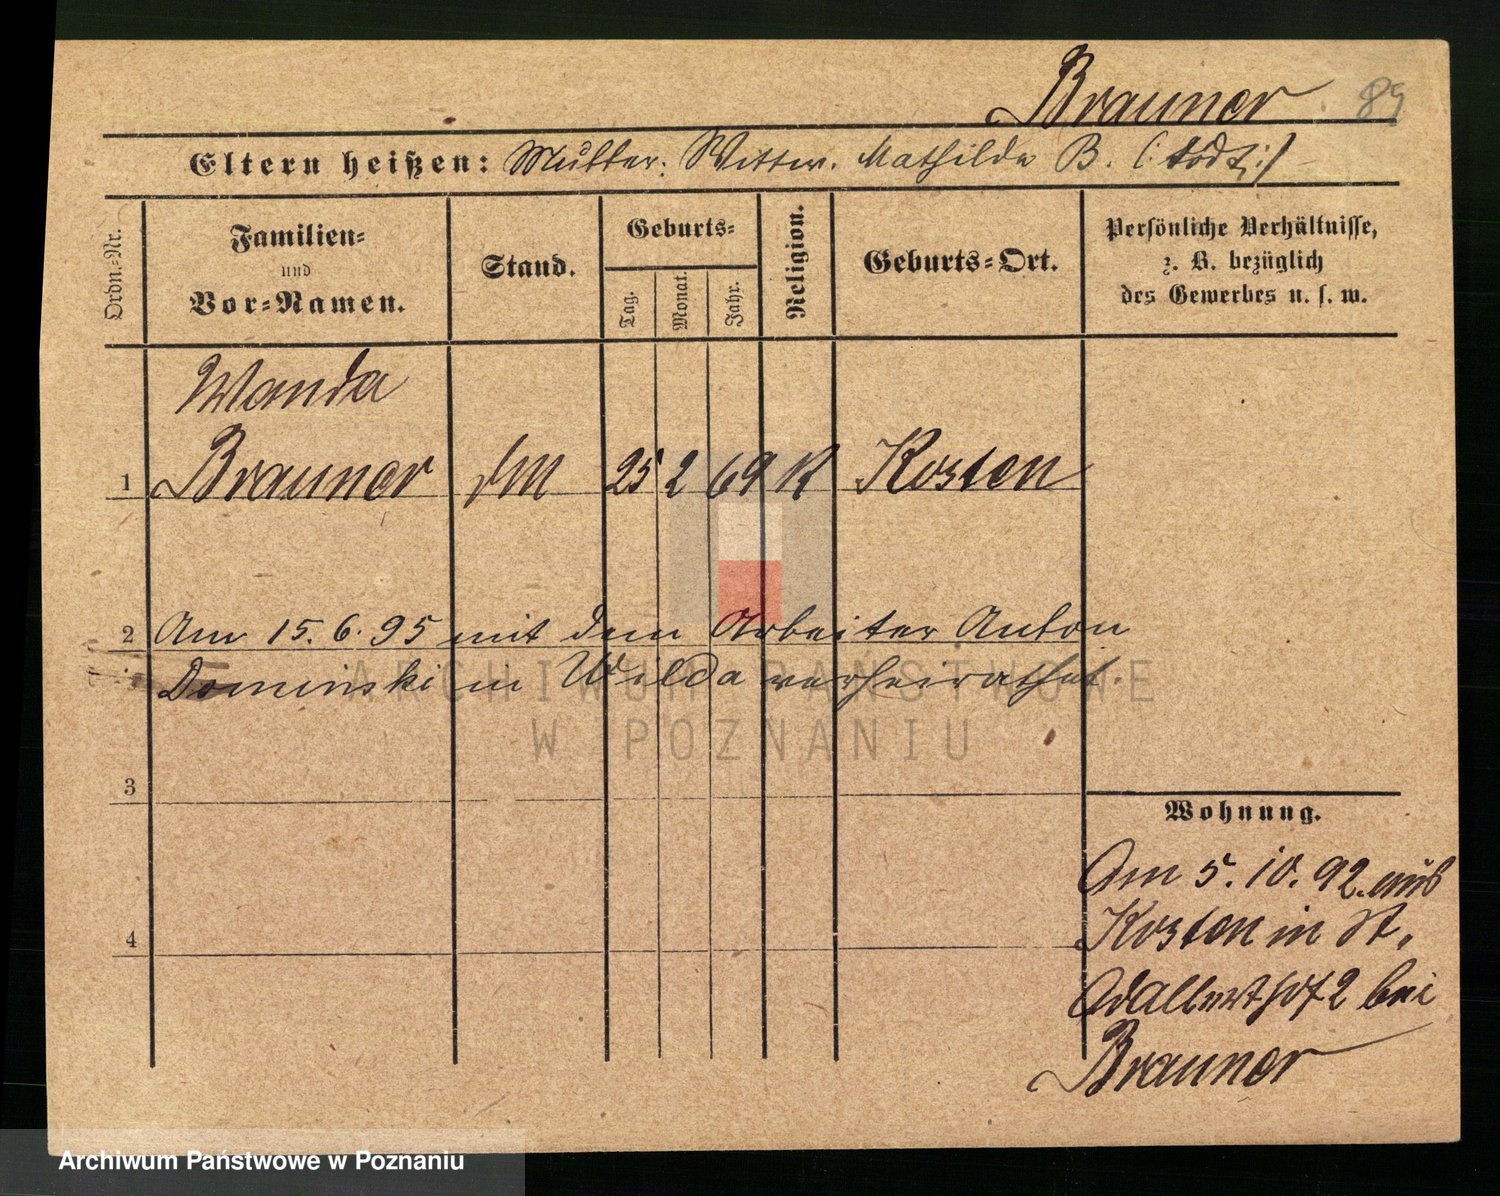 Brauner 89
Eltern heißen: Mutter: Wittw. Mathilde B.
Ordn.=Nr.
Familien=
und
Vor=Namen.
Stand.
Geburts=
Tag.
Monat.
Jahr.
Religion.
Geburts=Ort.
Persönliche Verhältnisse,
z. B. bezüglich
des Gewerbes u. s. w.
Wanda
1 Brauner 25 2 69 K Kosten
2 Am 15. 6. 95 mit dem Arbeiter Anton
Dominski in Wilda verheirathet.
ARCHIWUM PAŃSTWOWE
W POZNANIU
3
Wohnung.
Am 5. 10. 92. aus
4
Kosten in St.
Adalberthof 2 bei
Brauner
Archiwum Państwowe w Poznaniu